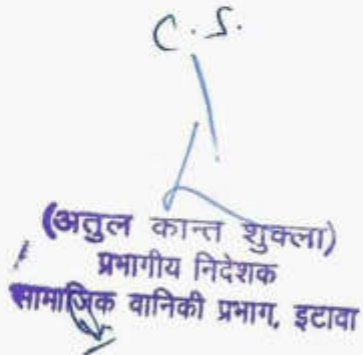 C.S.
(अतुल कान्त शुक्ला)
प्रभागीय निदेशक
सामाजिक वानिकी प्रभाग, इटावा